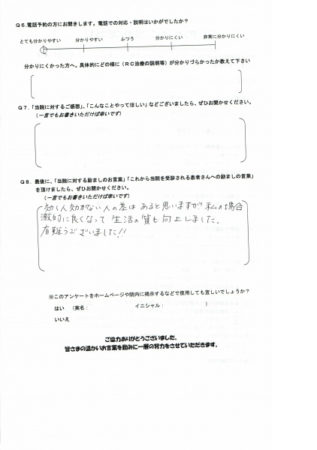 Q6.電話予約の方にお聞きします。電話での対応・説明はいかがでしたか？
とても分かりやすい 分かりやすい ふつう 分かりにくい 非常に分かりにくい
分かりにくかった方へ、具体的にどの様に（RC治療の説明等）が分かりづらかったか教えて下さい
Q7.「当院に対するご感想」、「こんなことやってほしい」などございましたら、ぜひお聞かせください。
（一言でもお書きいただければ幸いです）
Q8. 最後に、「当院に対する励ましのお言葉」「これから当院を受診される患者さんへの励ましの言葉」
を頂けましたら、ぜひお聞かせください。
（一言でもお書きいただければ幸いです）
効く人効かない人の差はあると思いますが私の場合
劇的に良くなって生活の質も向上しました。
有難うございました!!
※このアンケートをホームページや院内に掲示するなどで使用しても宜しいでしょうか？
はい （実名： イニシャル： ）
いいえ
ご協力ありがとうございました。
皆さまの温かいお言葉を励みに一層の努力をさせていただきます。